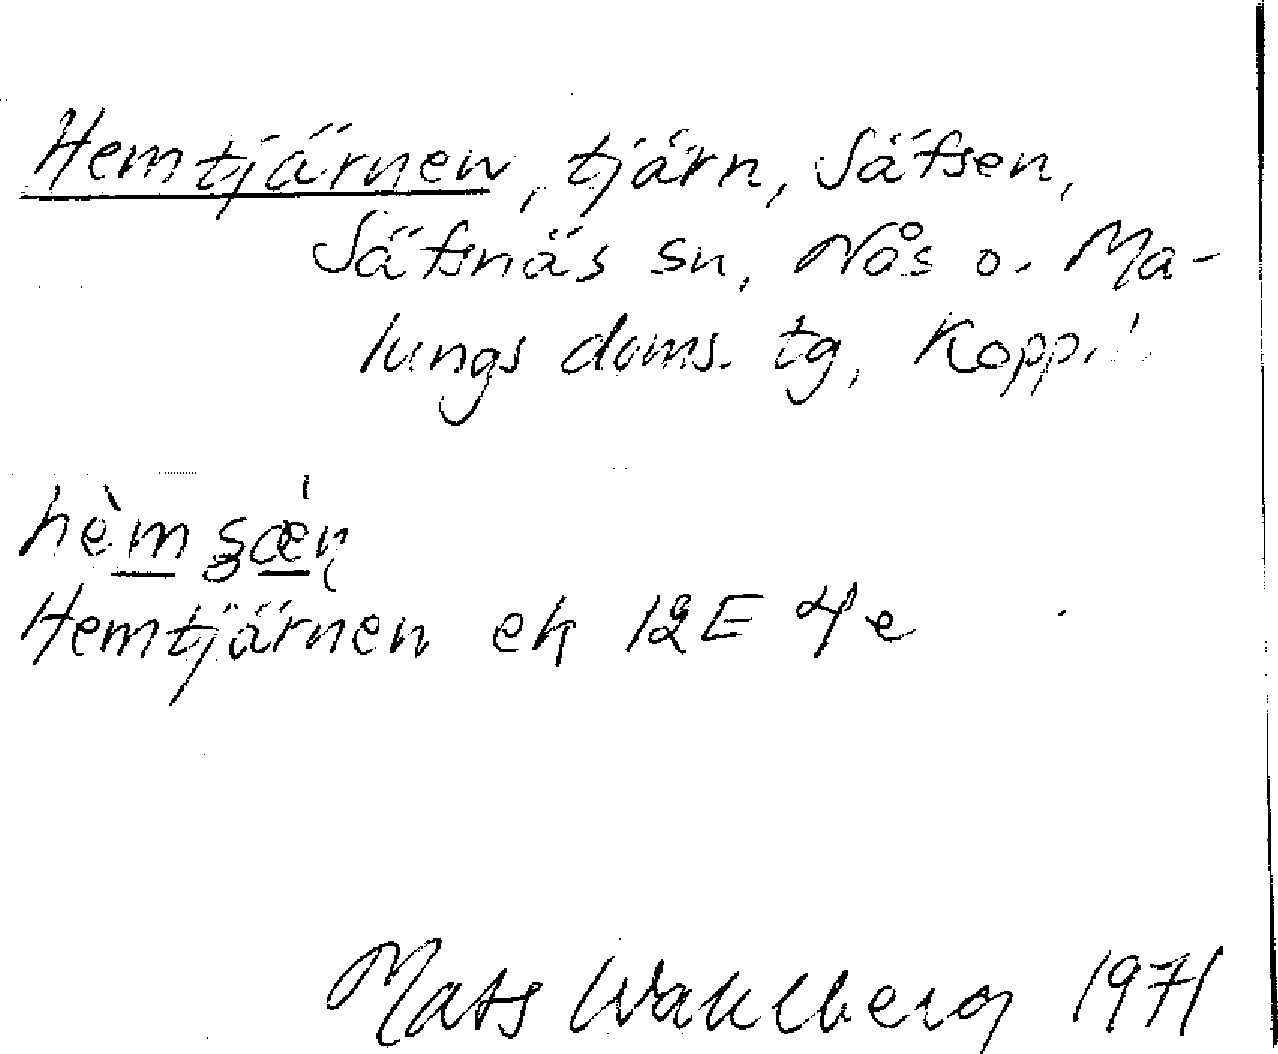 Hemtjärnen, tjärn, Säfsen,
Säfsnäs sn, Nås o. Ma-
lungs doms. tg, Kopp.
Hemtjärnen ek 12E 4e
Mats Wahlberg 1971